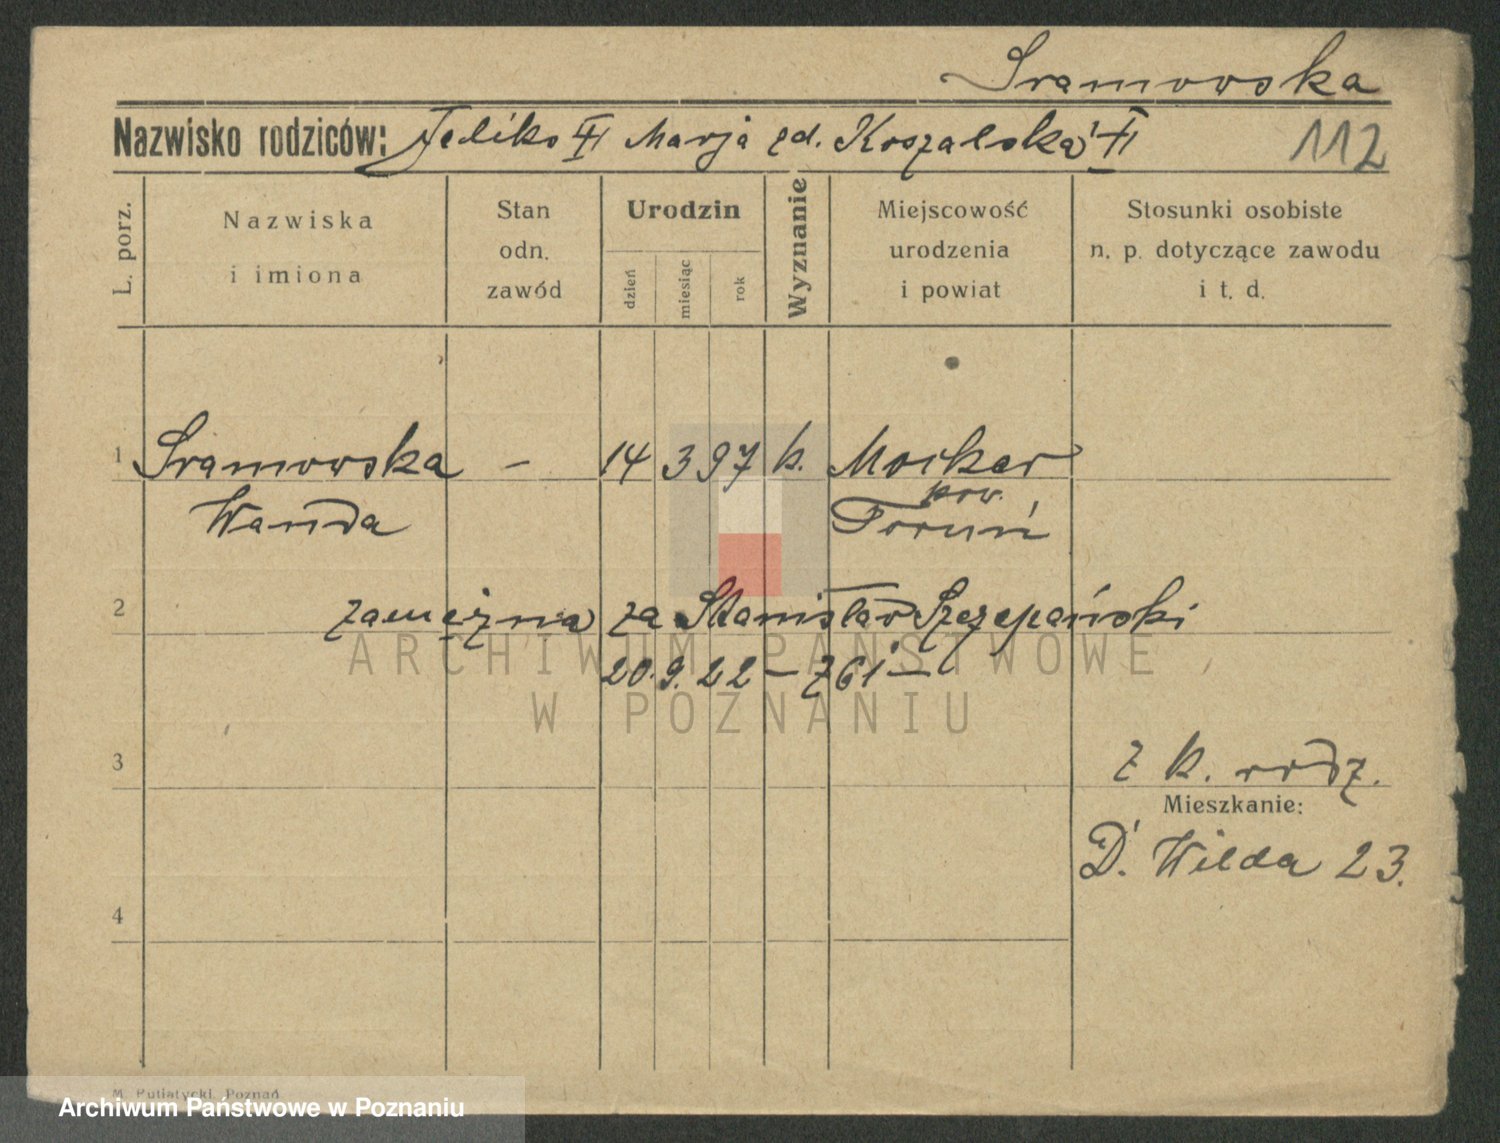 Sramowska
Nazwisko rodziców: Feliks Marja zd. Koszalska
112
L. porz.
Nazwiska i imiona
Stan odn. zawód
Urodzin
dzień miesiąc rok
Wyznanie
Miejscowość urodzenia i powiat
Stosunki osobiste n. p. dotyczące zawodu i t. d.
1 Sramowska – 14 3 97 k. Mocker
Wanda pow. Toruń
2 zamężna za Stanisław Szczepański
20. 9. 22 – 761 –
ARCHIWUM PAŃSTWOWE
W POZNANIU
3 z k. rodz.
Mieszkanie:
D. Wilda 23.
4
M. Putiatycki, Poznań
Archiwum Państwowe w Poznaniu